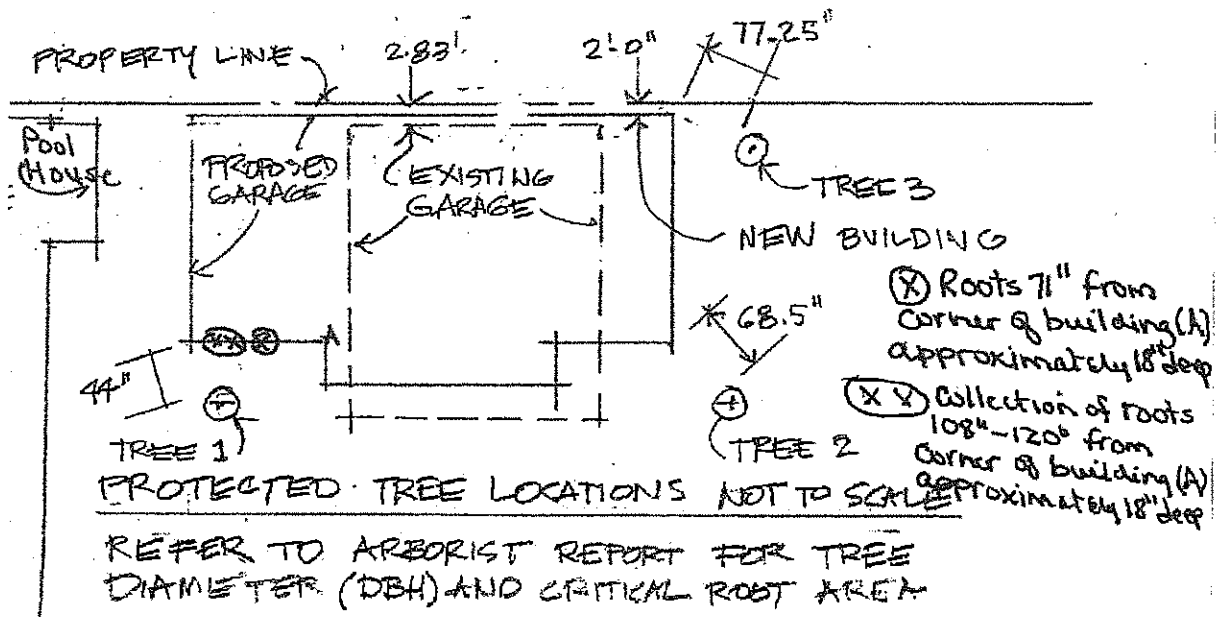 PROPERTY LINE
2.83'
2'-0"
77.25"
Pool
House
PROPOSED
GARAGE
EXISTING
GARAGE
TREE 3
NEW BUILDING
68.5"
A
44"
TREE 1
TREE 2
X Roots 71" from
corner of building (A)
approximately 18" deep
X X Collection of roots
108"-120" from
corner of building (A)
approximately 18" deep
PROTECTED TREE LOCATIONS NOT TO SCALE
REFER TO ARBORIST REPORT FOR TREE
DIAMETER (DBH) AND CRITICAL ROOT AREA